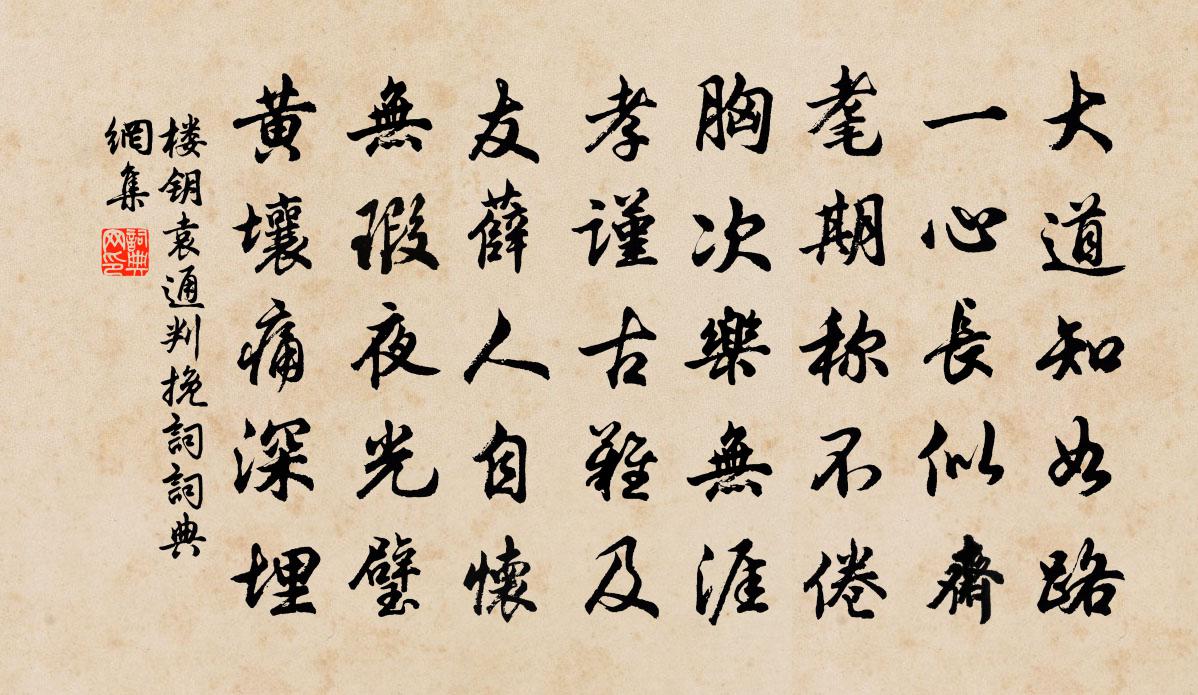 大道知如路
一心長似齋
耄期称不倦
胸次樂無涯
孝謹古難及
友薛人自懷
無瑕夜光璧
黃壤痛深埋
楼钥袁通判挽詞詞典
網集
詞典
网印